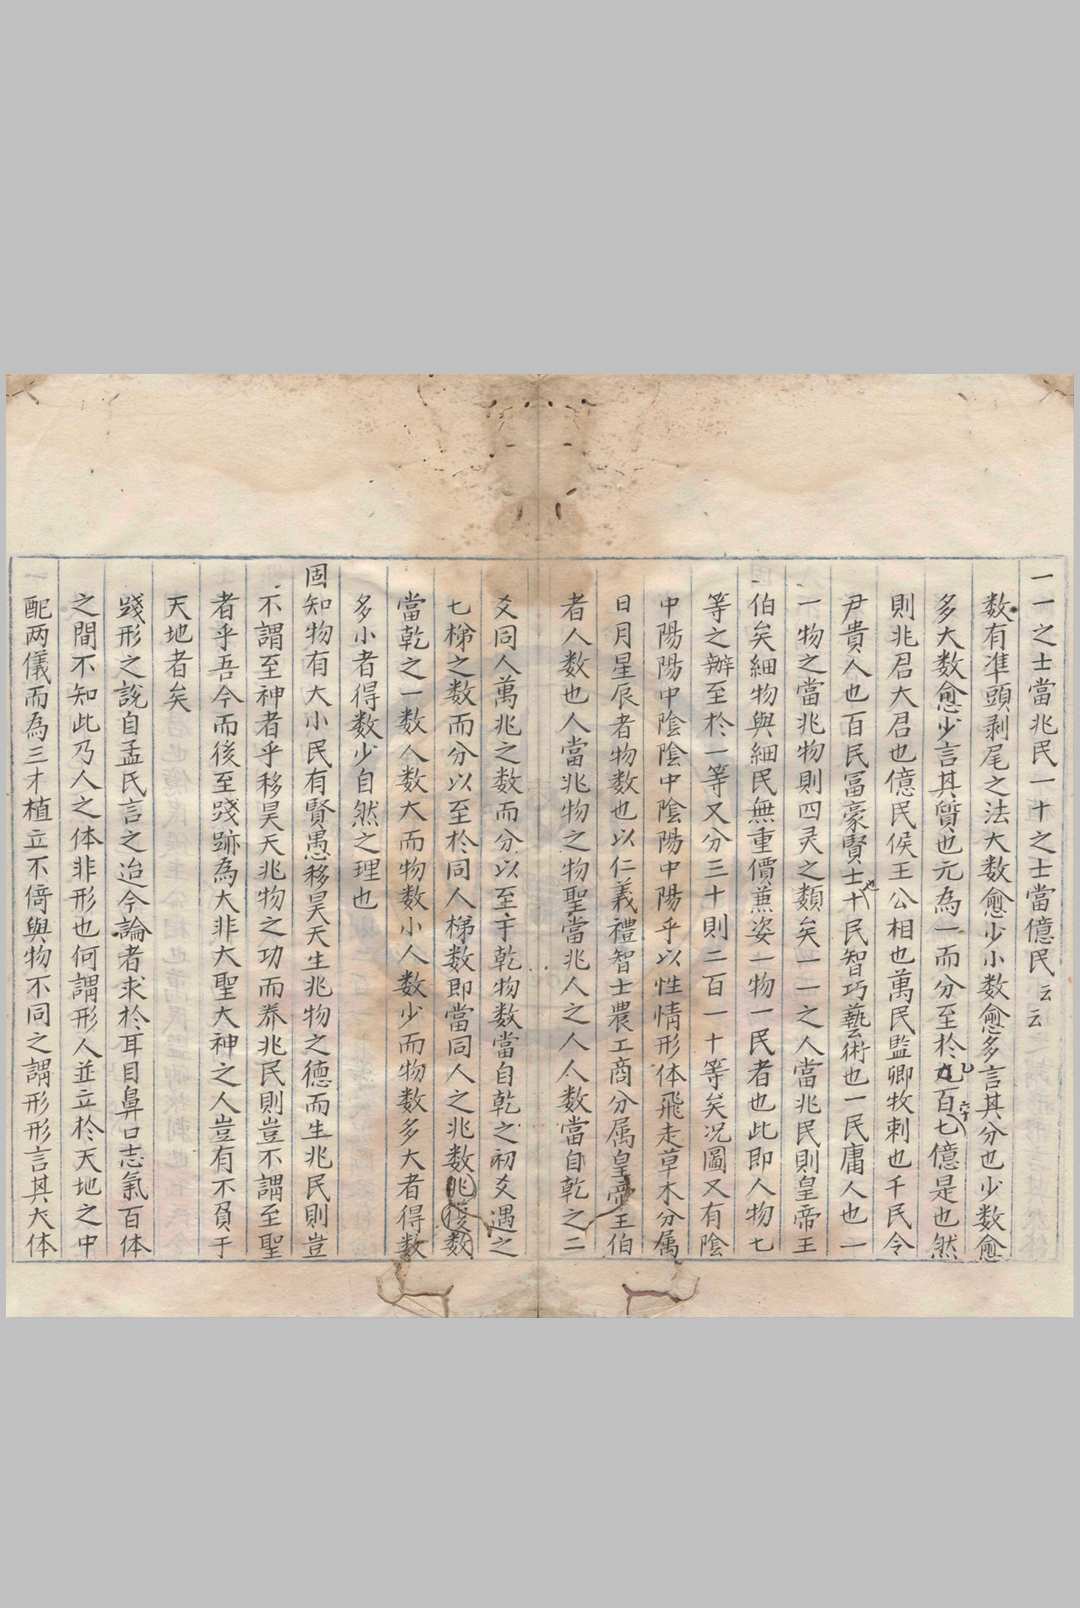 一一之士當兆民一十之士當億民云云
数有準頭剥尾之法大数愈少小数愈多言其分也少数愈
多大数愈少言其質也元為一而分至於九百七億是也然
則兆君大君也億民侯王公相也萬民監卿牧刺也千民令
尹貴人也百民冨豪賢士也十民智巧藝術也一民庸人也一
一物之當兆物則四灵之類矣一一之人當兆民則皇帝王
伯矣細物與細民無重價蕙姿一物一民者也此即人物七
等之辦至於一等又分三十則二百一十等矣况圖又有陰
中陽陽中陰陰中陰陽中陽乎以性情形体飛走草木分属
日月星辰者物数也以仁義禮智士農工商分属皇帝王伯
者人数也人當兆物之物聖當兆人之人人数當自乾之二
爻同人萬兆之数而分以至于乾物数當自乾之初爻遇之
七梯之数而分以至於同人梯数即當同人之兆数兆後数
當乾之一数人数大而物数小人数少而物数多大者得数
多小者得数少自然之理也
固知物有大小民有賢愚移昊天生兆物之德而生兆民則豈
不謂至神者乎移昊天兆物之功而养兆民則豈不謂至聖
者乎吾今而後至踐跡為大非大聖大神之人豈有不負于
天地者矣
踐形之說自孟氏言之迨今論者求於耳目鼻口志氣百体
之間不知此乃人之体非形也何謂形人並立於天地之中
配两儀而為三才植立不倚與物不同之謂形形言其大体